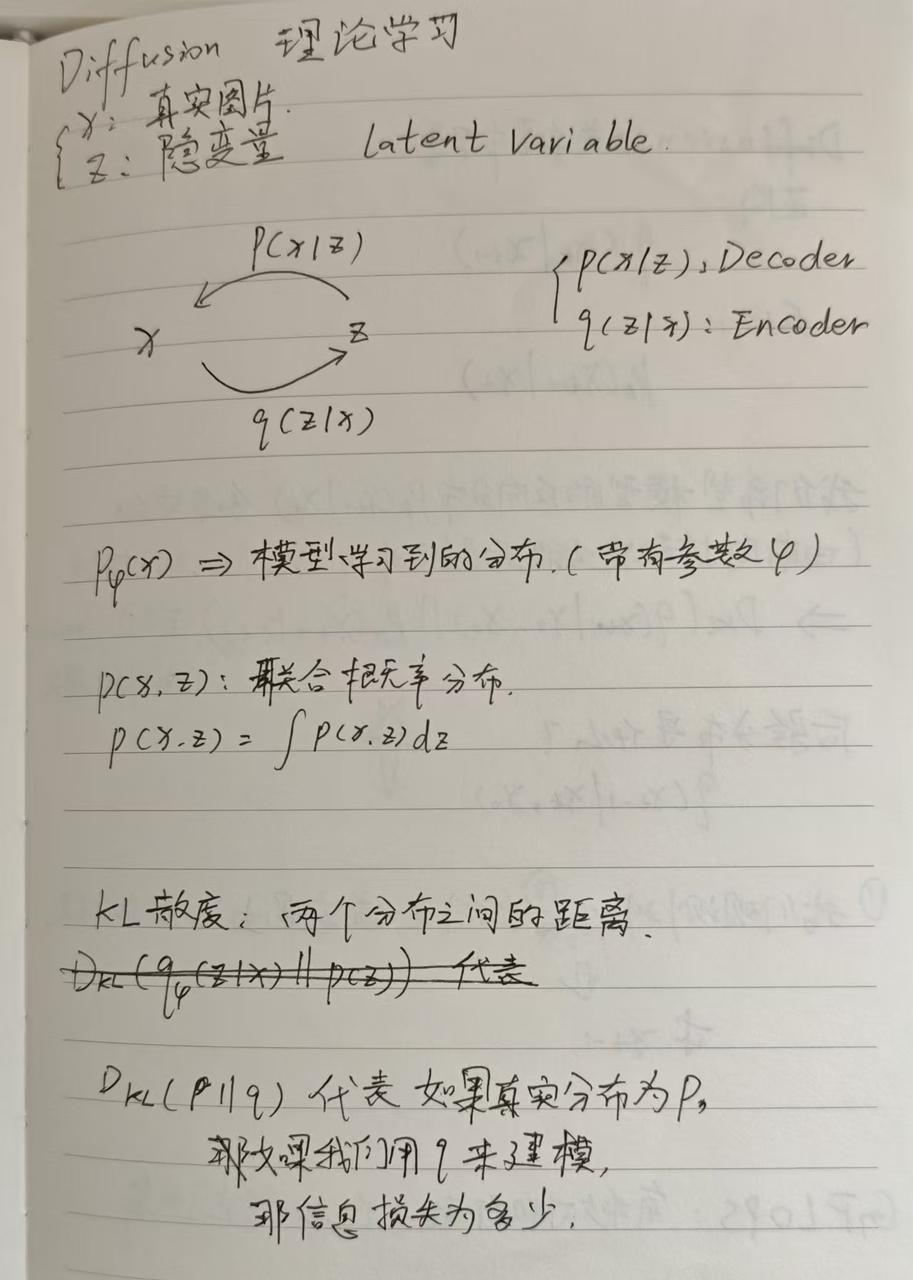 Diffusion 理论学习
x: 真实图片.
z: 隐变量 latent variable.
p(x|z)
p(x|z): Decoder
x z
q(z|x): Encoder
q(z|x)
Pφ(x) ⇒ 模型学习到的分布.(带有参数φ)
p(x, z): 联合概率分布.
p(x,z) = ∫ p(x,z) dz
KL散度: 两个分布之间的距离.
DKL(qφ(z|x) || p(z)) 代表
DKL(p||q) 代表 如果真实分布为p,
那如果我们用q来建模,
那信息损失为多少.